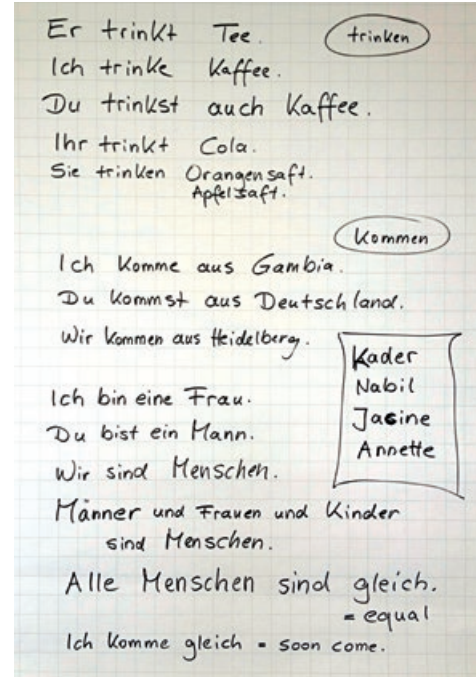 Er trinkt Tee.
trinken
Ich trinke Kaffee.
Du trinkst auch Kaffee.
Ihr trinkt Cola.
Sie trinken Orangensaft.
Apfelsaft.
kommen
Ich komme aus Gambia.
Du kommst aus Deutschland.
Wir kommen aus Heidelberg.
Kader
Nabil
Jasine
Annette
Ich bin eine Frau.
Du bist ein Mann.
Wir sind Menschen.
Männer und Frauen und Kinder
sind Menschen.
Alle Menschen sind gleich.
= equal
Ich komme gleich = soon come.